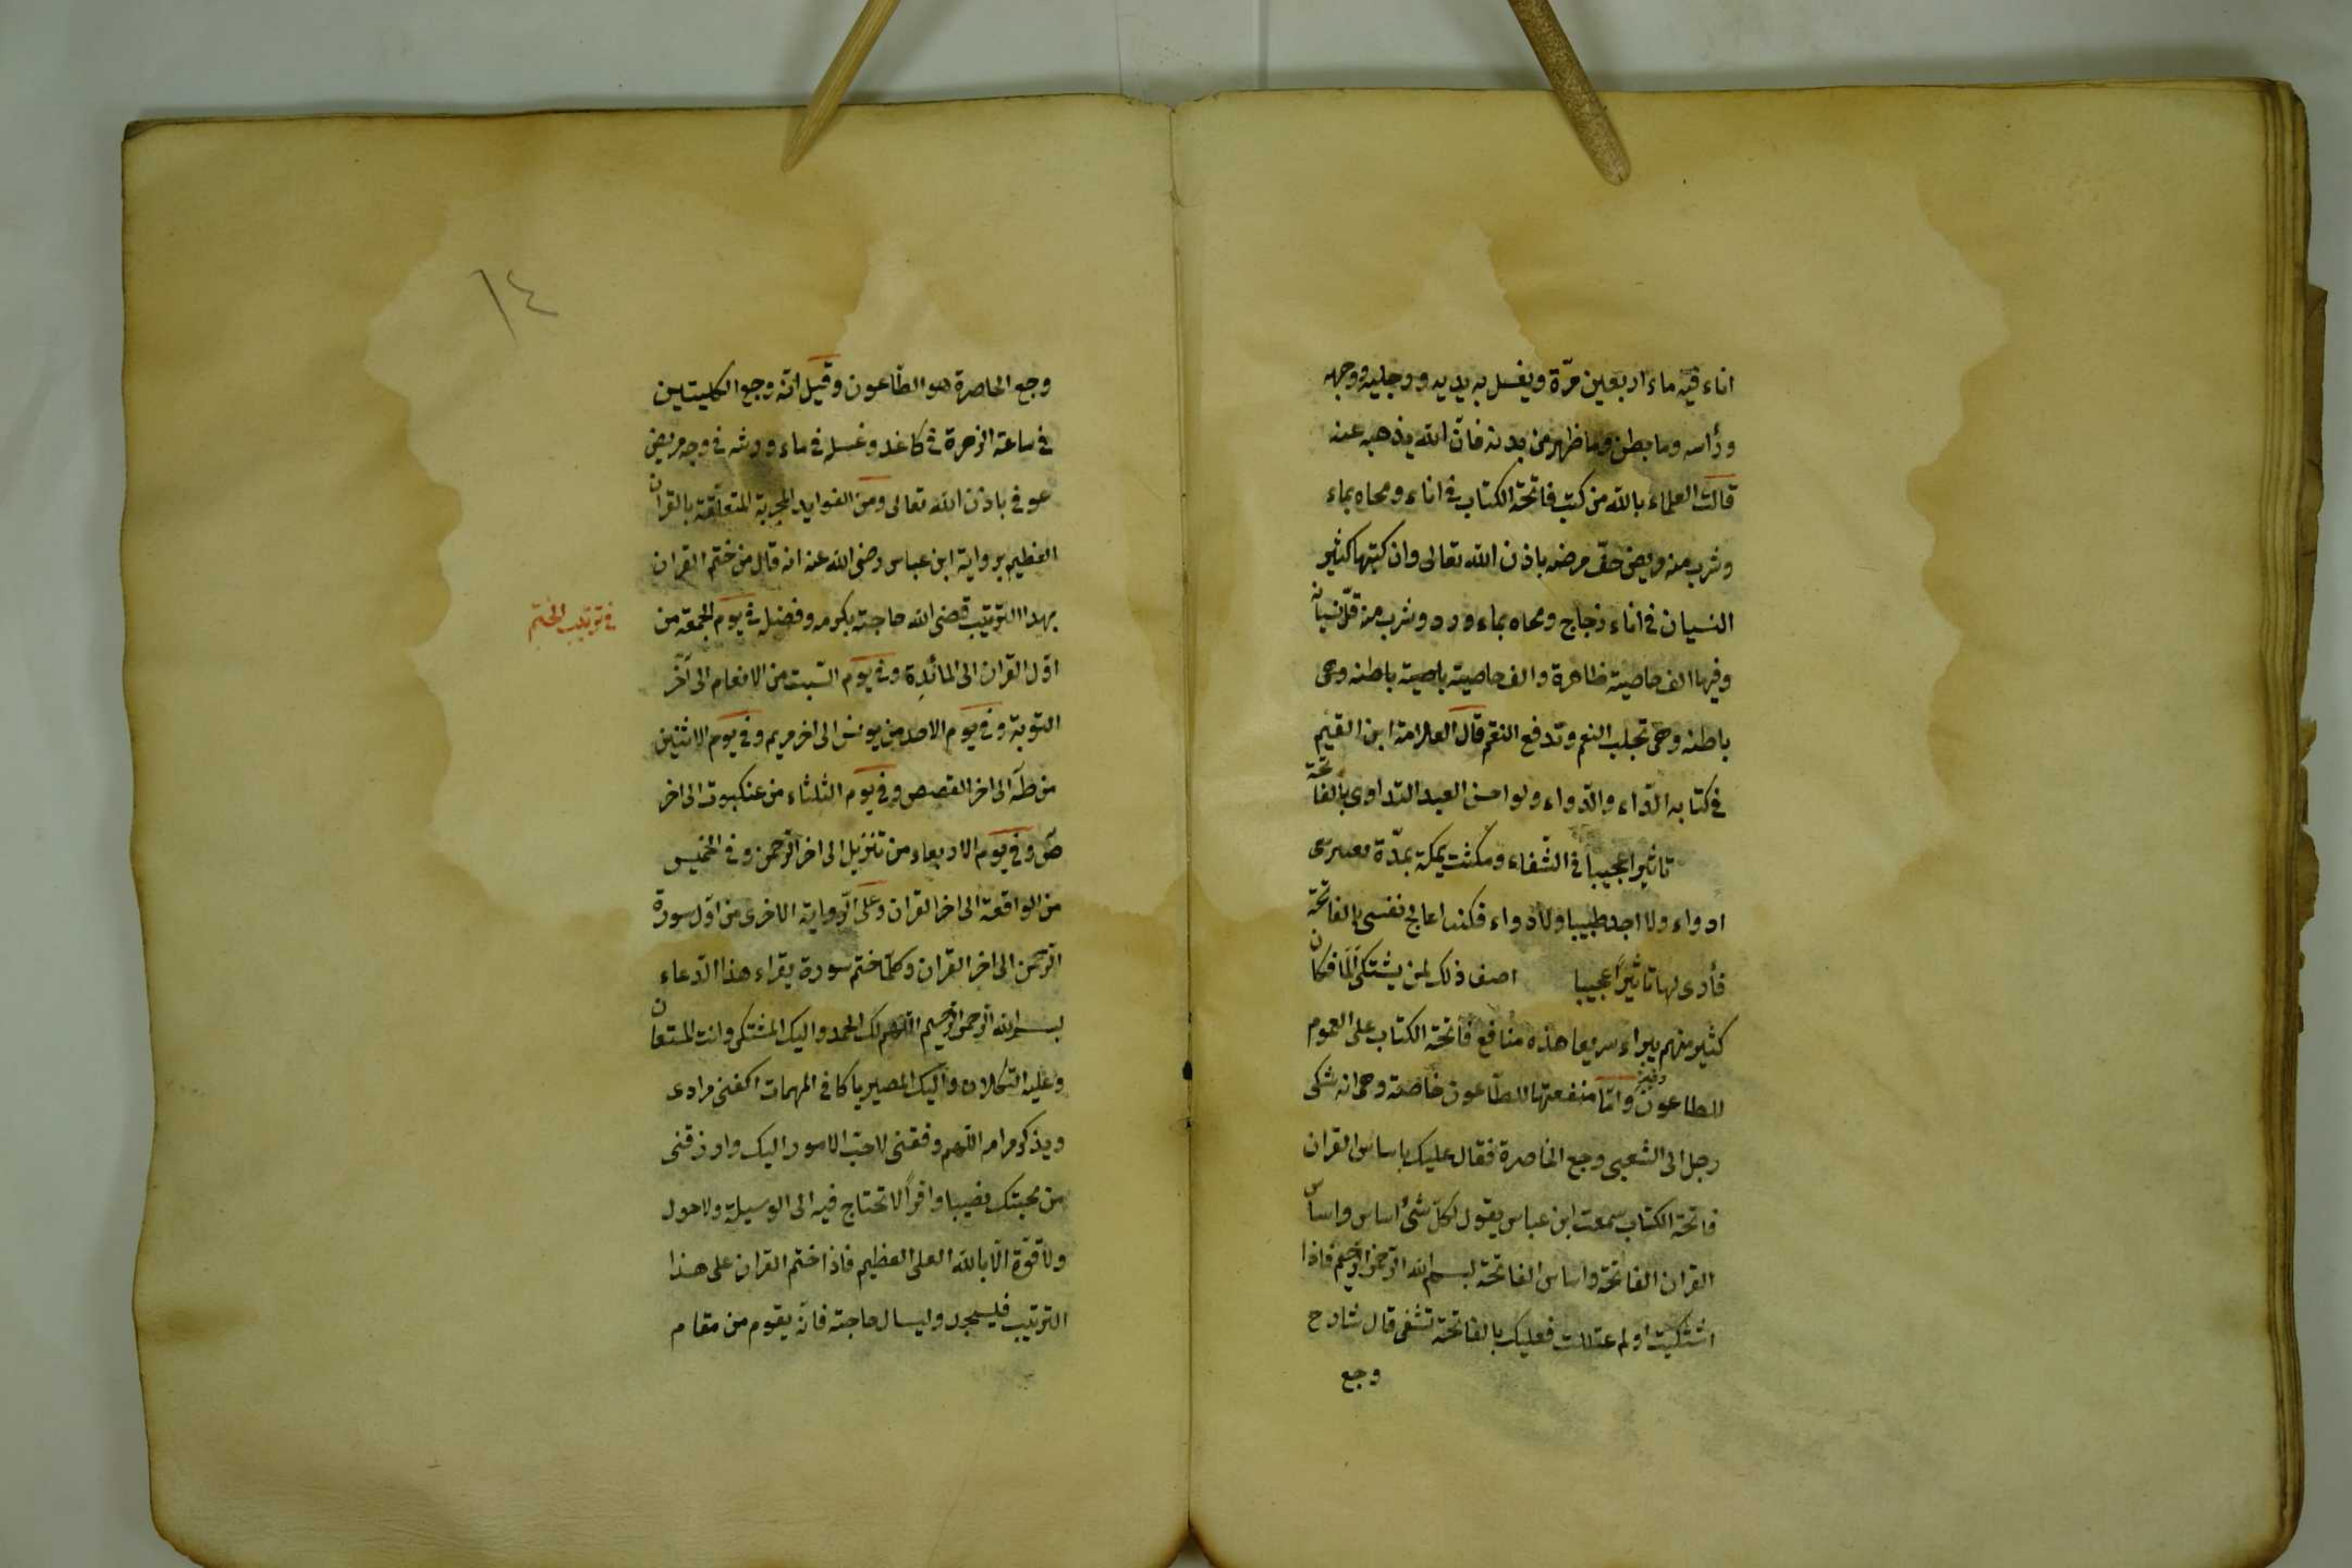 اناء فيه ماء اربعين مرّة ويغسل به يديه ورجليه ووجهه
ورأسه وما بطن وما ظهر من بدنه فانّ الله يذهبه عنه
قالت العلماء بالله من كتب فاتحة الكتاب في اناء ومحاه بماء
وشرب منه مريض خفّ مرضه باذن الله تعالى وان كتبها كثير
النسيان في اناء زجاج ومحاه بماء ورد وشرب منه قلّ نسيانه
وفيها الف خاصية ظاهرة والف خاصية باطنه وهى
باطنه وهى تجلب النعم وتدفع النقم قال العلامة ابن القيم
في كتابه الدّاء والدّواء ولو احسن العبد التداوى بالفاتحة
تاثيرا عجيبا في الشّفاء ومكثت بمكة بمدّة
ادواء ولا اجد طبيبا ولا دواء فكنت اعالج نفسى بالفاتحة
فأرى لها تاثيرًا عجيبا اصف ذلك لمن يشتكى ألمًا فكان
كثير منهم يبراء سريعا هذه منافع فاتحة الكتاب على العموم
للطاعون وغيره وامّا منفعتها للطّاعون خاصة وهى انه شكى
رجل الى الشعبى وجع الخاصرة فقال عليك باساس القران
فاتحة الكتاب سمعت ابن عباس يقول لكلّ شئ اساس واساس
القران الفاتحة واساس الفاتحة بسم الله الرّحمن الرّحيم فاذا
اشتكيت او لم عتللت فعليك بالفاتحة تشفى قال شارح
وجع
١٤
وجع الخاصرة هو الطّاعون وقيل انّه وجع الكليتين
في ساعة الزهرة في كاغد وغسله في ماء ورشه في وجه مريض
عوفي باذن الله تعالى ومن الفوايد المجربة المتعلّقة بالقران
العظيم برواية ابن عباس رضى الله عنه انه قال من ختم القران
بهذا التّرتيب قضى الله حاجته بكرمه وفضله في يوم الجمعة من
في ترتيب الختم
اوّل القران الى المائدة وفي يوم السّبت من الانعام الى آخر
التوبة وفي يوم الاحد من يونس الى اخر مريم وفي يوم الاثنين
من طه الى اخر القصص وفي يوم الثلثاء من عنكبوت الى اخر
صٓ وفي يوم الاربعاء من تنزيل الى اخر الرّحمن وفي الخميس
من الواقعة الى اخر القران وعلى الرّواية الاخرى من اوّل سورة
الرّحمن الى اخر القران وكلّما ختم سورة يقراء هذا الدّعاء
بسم الله الرّحمن الرّحيم اللهم لك الحمد واليك المشتكى وانت المستعان
وعليه التكلان واليك المصير يا كافي المهمات اكفنى مرادى
ويذكر مرامه اللّهم وفقنى لاحبّ الامور اليك وارزقنى
من محبتك نصيبا وافرًا لا تحتاج فيه الى الوسيلة ولا حول
ولا قوّة الّا بالله العلى العظيم فاذا ختم القران على هذا
الترتيب فليسجد وليسال حاجته فانّه يقوم من مقام